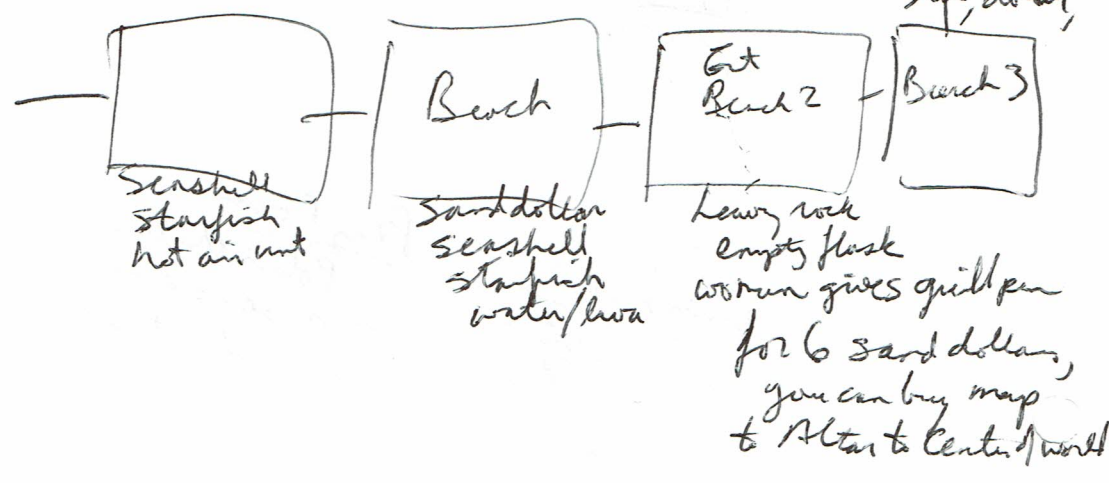 Beach
Beach 2
Beach 3
seashell
starfish
hot air vent
sanddollar
seashell
starfish
water/lava
heavy rock
empty flask
woman gives quill pen
for 6 sand dollars,
you can buy map
to Altar to Center of world